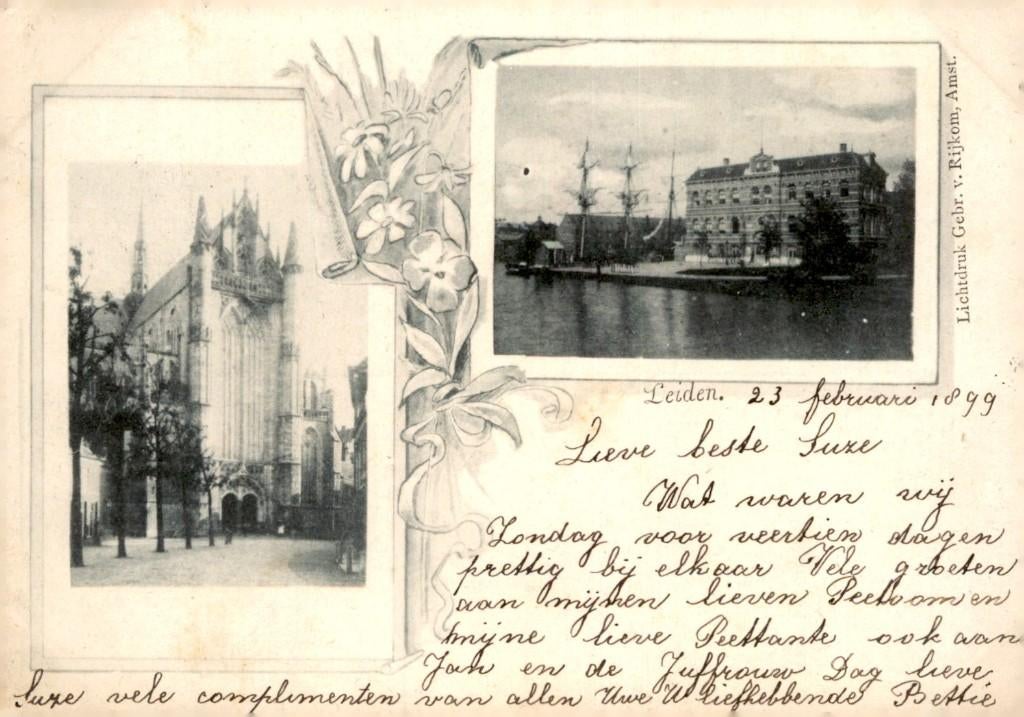 Lichtdruk Gebr. v. Rijkom, Amst.
Leiden. 23 februari 1899
Lieve beste Suze
Wat waren wij
Zondag voor veertien dagen
prettig bij elkaar Vele groeten
aan mijnen lieven Peetoom en
mijne lieve Peettante ook aan
Jan en de Juffrouw Dag lieve
Suze vele complimenten van allen Uwe U liefhebbende Bettie